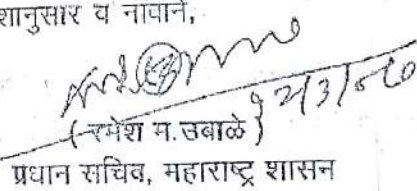 शानुसार व नावाने,
(रमेश म.उबाळे)
प्रधान सचिव, महाराष्ट्र शासन